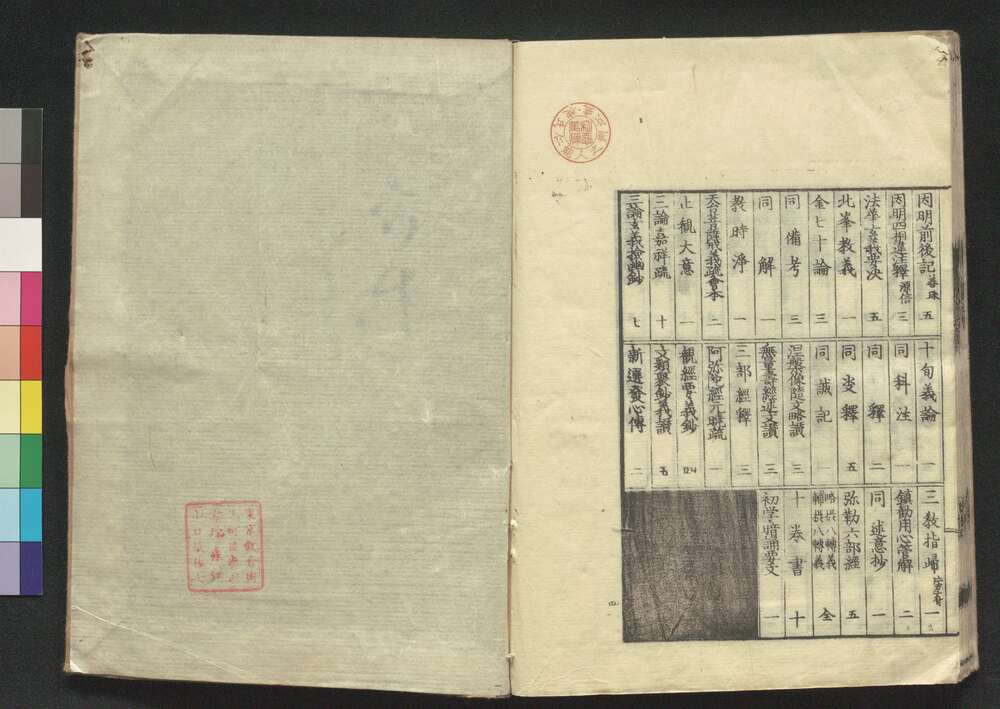 因明前後記 善珠 五
因明四相違注釋 源信 三
法華玄義要決 五
北峯教義 一
金七十論 三
同備考 三
同解 一
教時淨 一
天台菩薩戒義疏會本 二
止觀大意 一
三論嘉祥疏 十
三論玄義撿幽鈔 七
十句義論 一
同科注 一
同釋 二
同麦釋 五
同誡記
涅槃像隨文略讃 三
無量壽經述文讃 三
三部經釋 三
阿弥陀經元曉疏 一
觀經要義鈔 四
文類聚鈔義讃 五
新選發心傳 二
三教指歸 一
鎮勸用心管解 二
同述意抄 一
弥勒六部經 五
略攝八轉義
輔攝八轉義 全
十巻書 十
初学暗誦要文 一
四